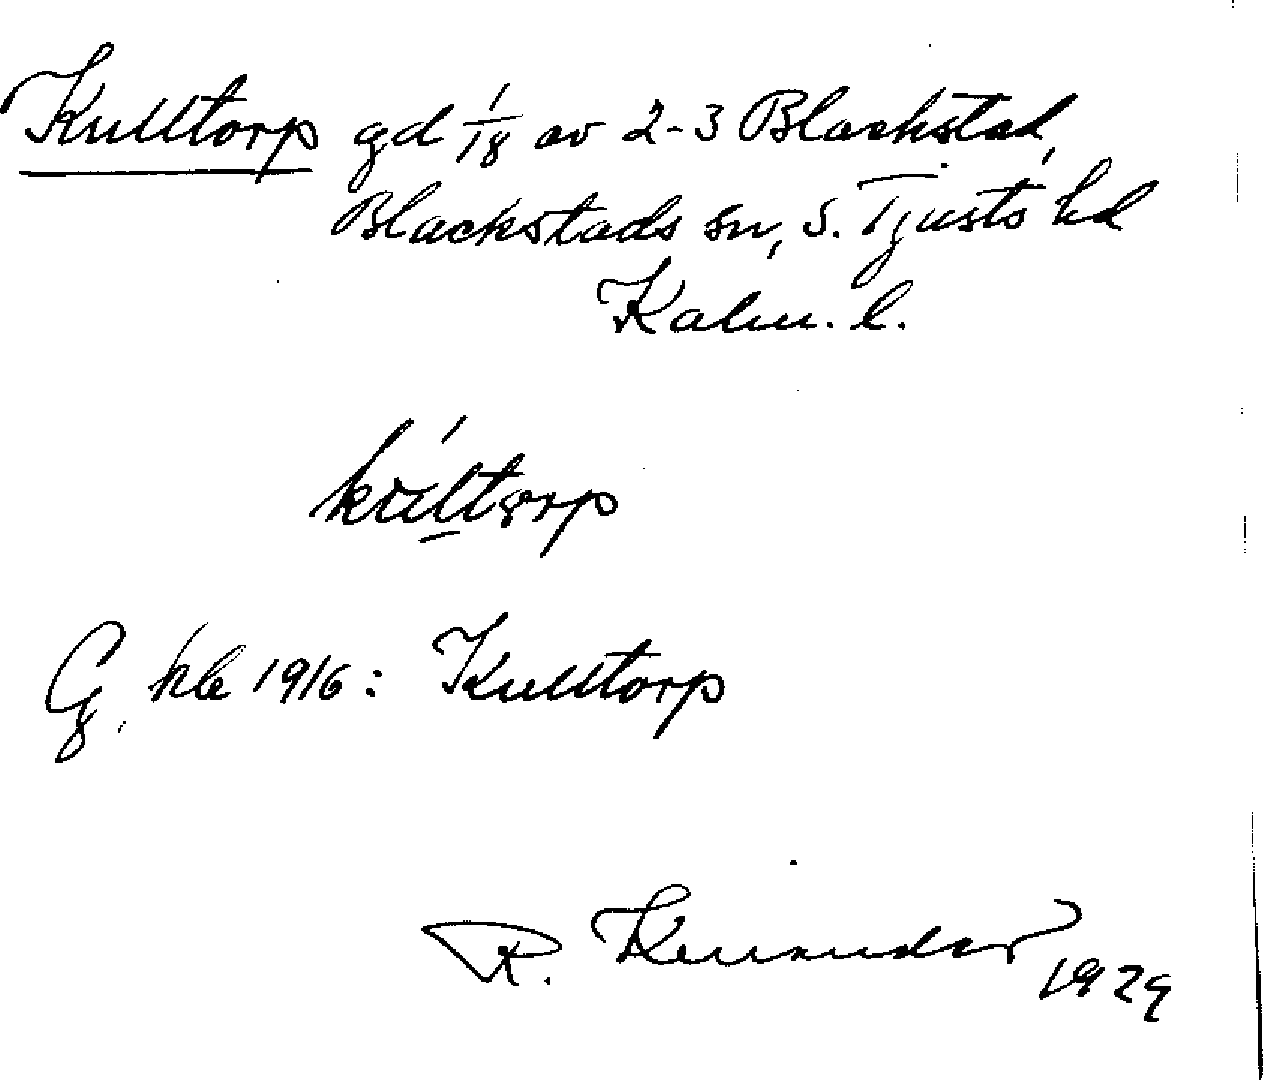 Kulltorp gd 1/18 av 2-3 Blackstad,
Blackstads sn, S. Tjusts hd
Kalm. l.
kulltorp
G. kb 1916: Kulltorp
R. 1929